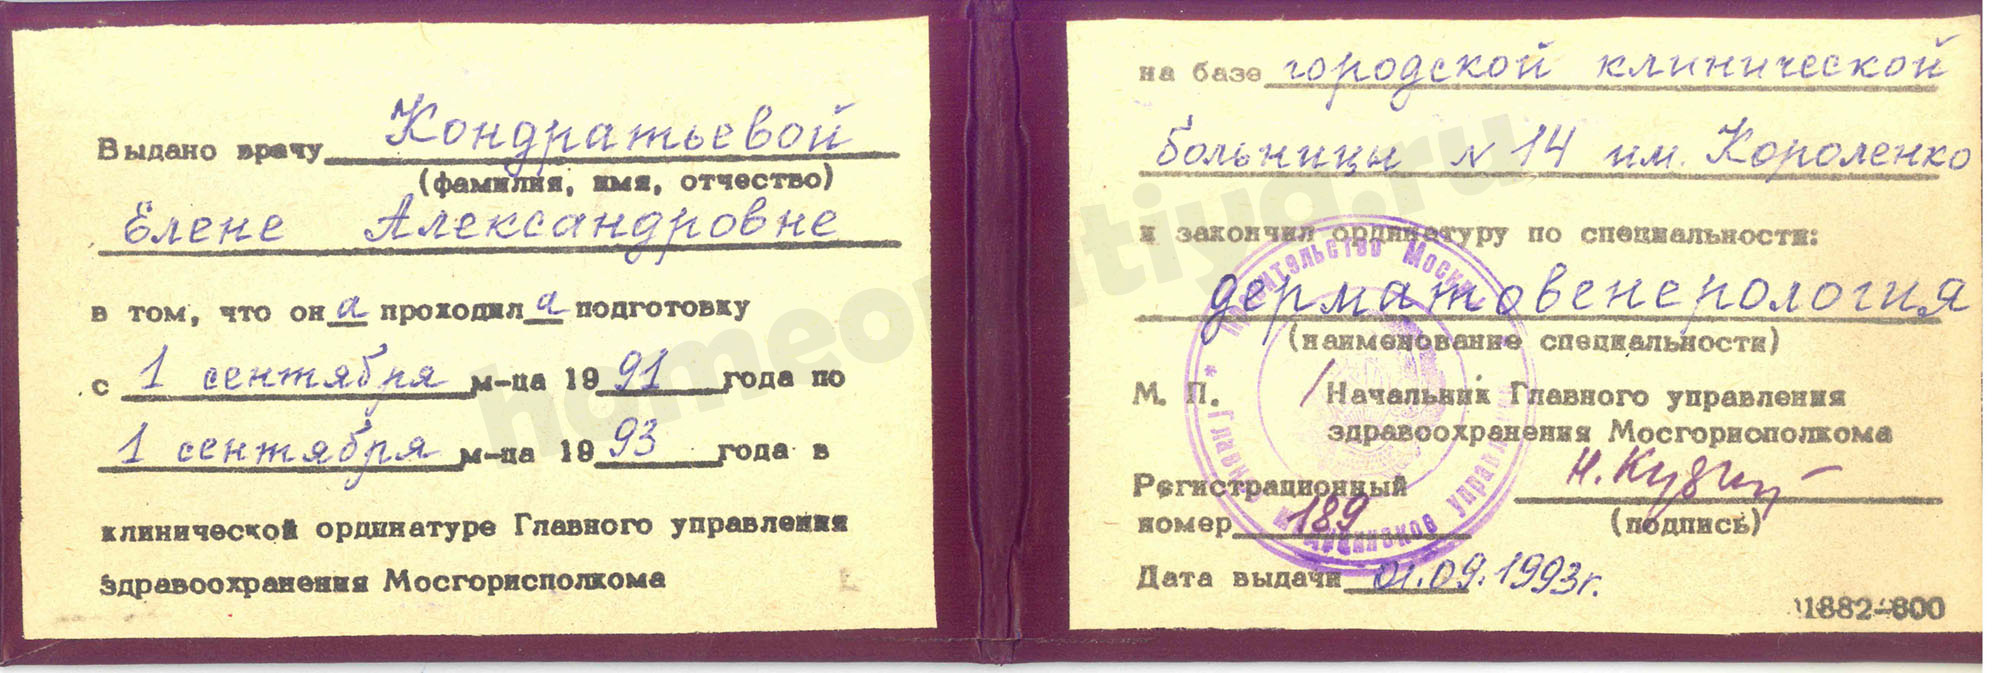 Выдано врачу Кондратьевой
(фамилия, имя, отчество)
Елене Александровне
в том, что он а проходил а подготовку
с 1 сентября м-ца 19 91 года по
1 сентября м-ца 19 93 года в
клинической ординатуре Главного управления
здравоохранения Мосгорисполкома
на базе городской клинической
больницы № 14 им. Короленко
и закончил ординатуру по специальности:
дерматовенерология
(наименование специальности)
М. П. Начальник Главного управления
здравоохранения Мосгорисполкома
Регистрационный
номер 189 (подпись)
Дата выдачи 01.09.1993г.
1882-800
Правительство Москвы
* Главное медицинское управление
homeopatiya.ru